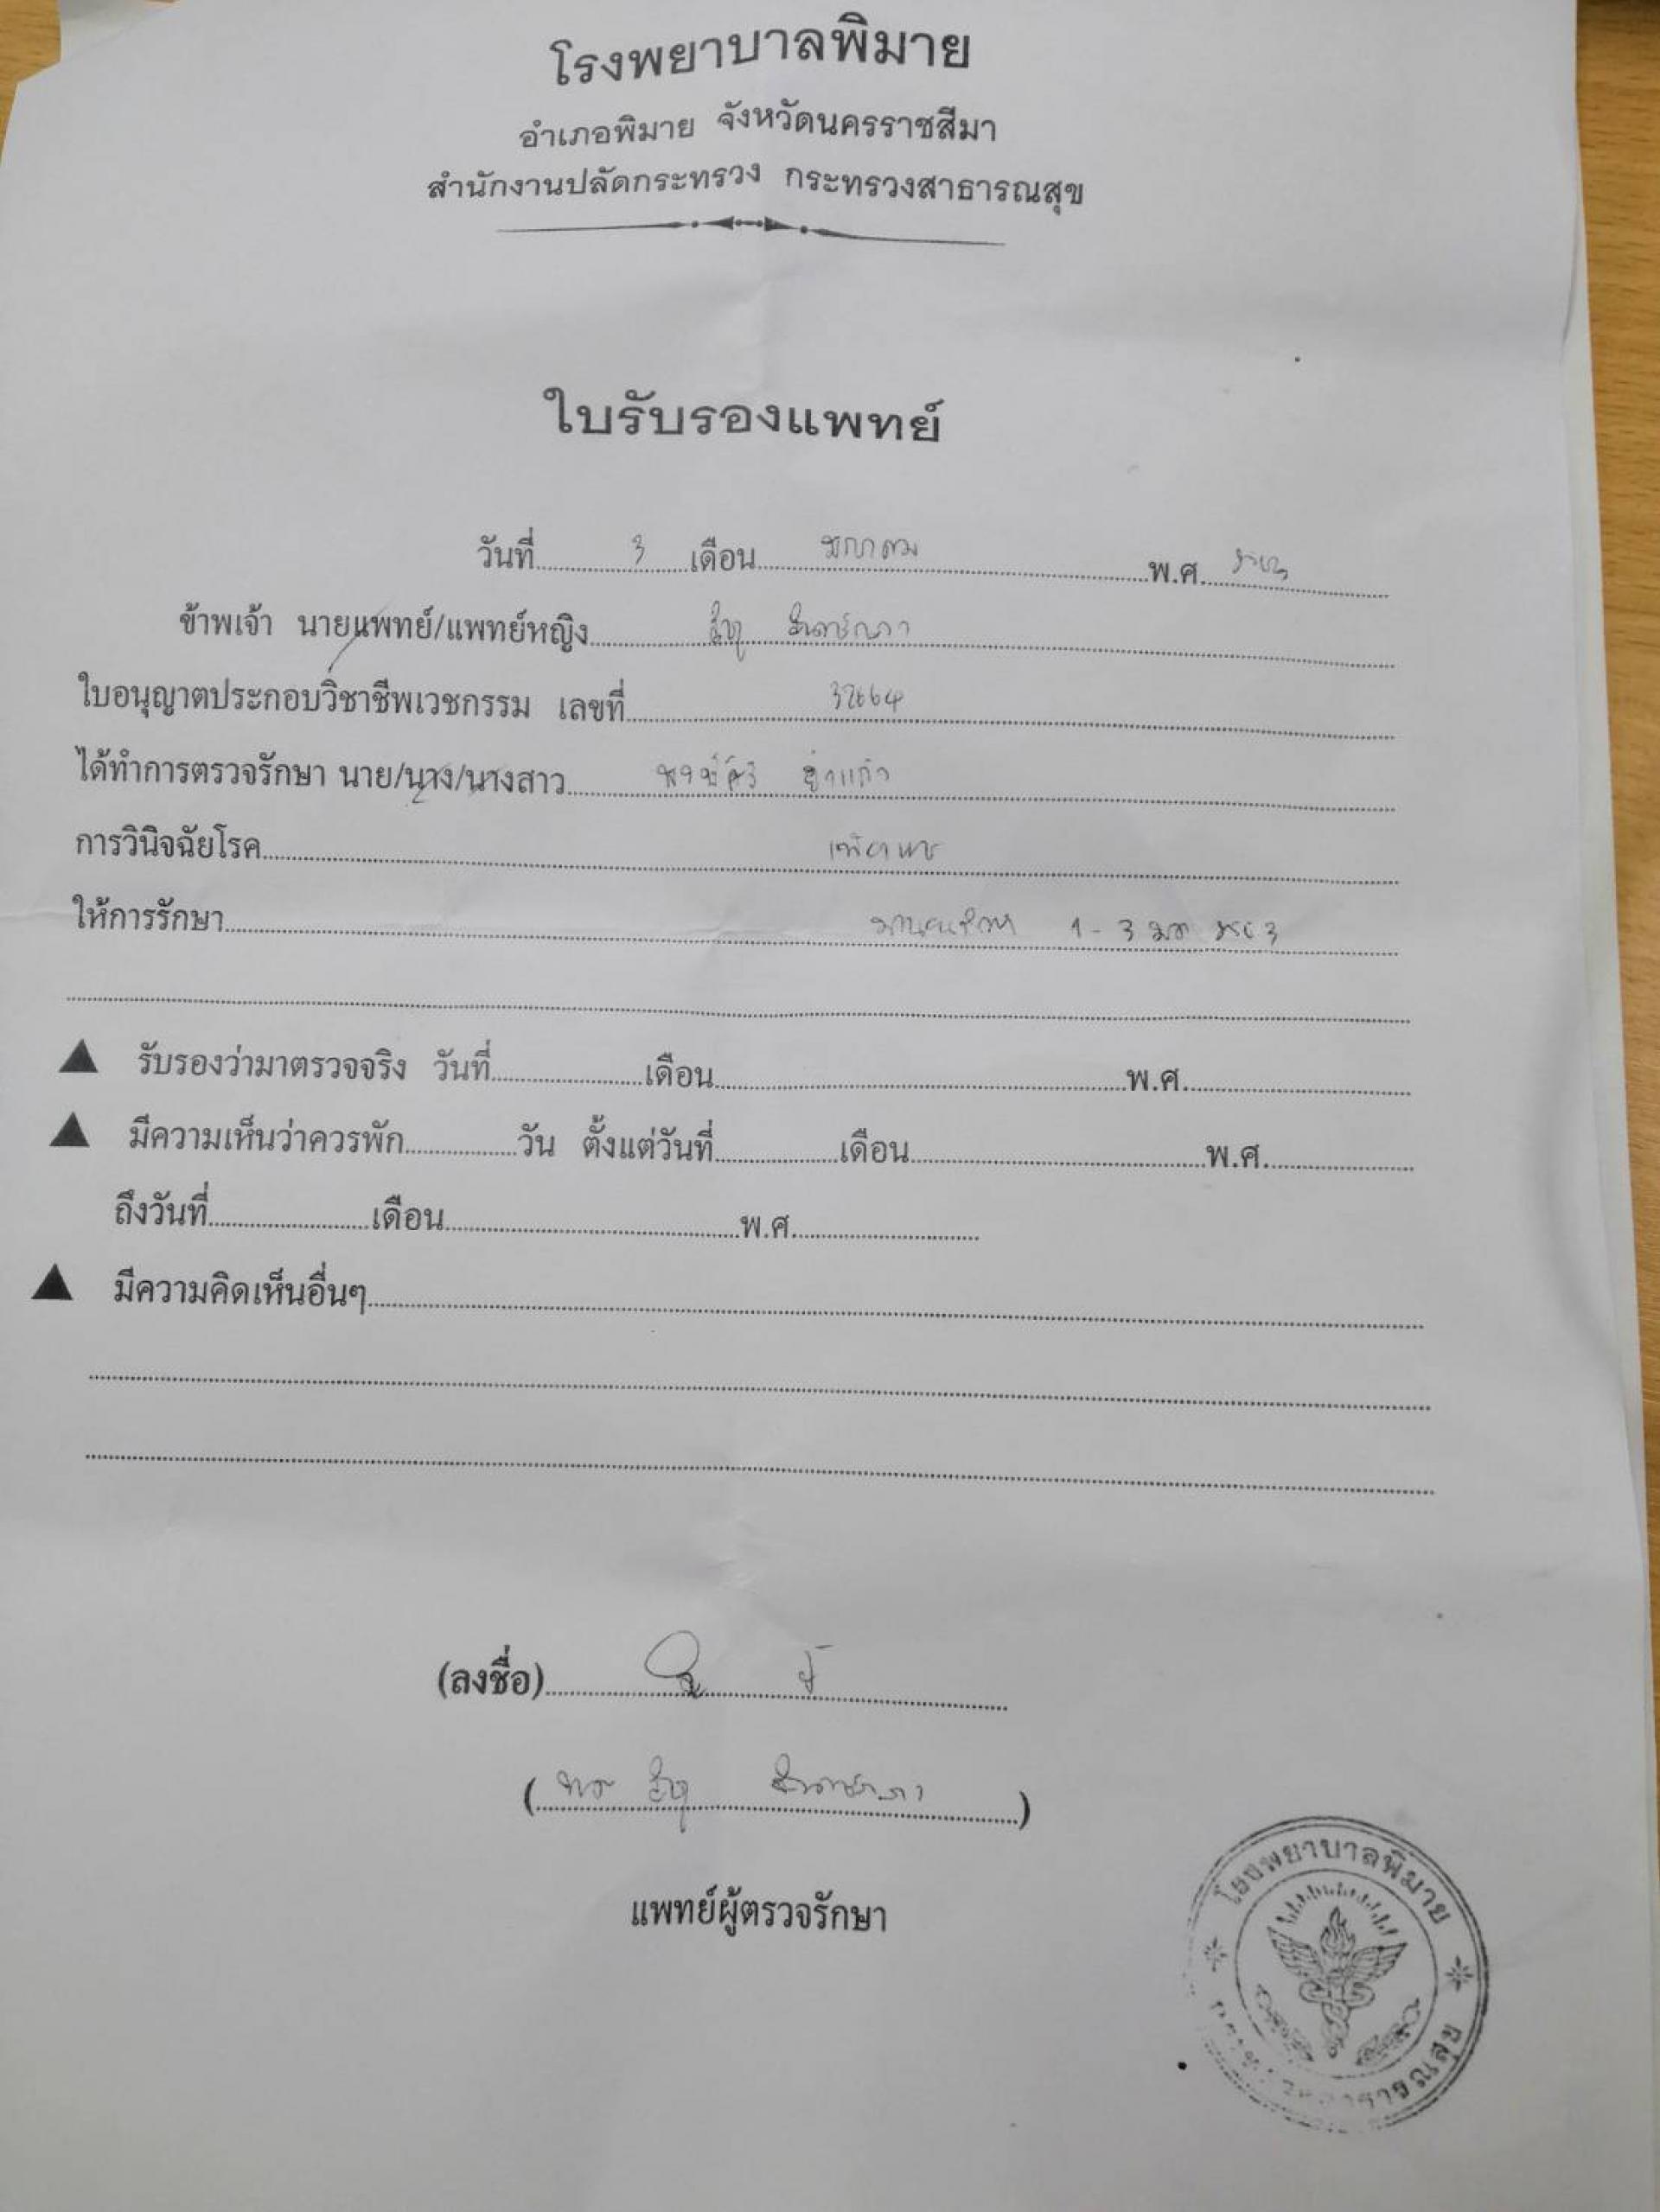 โรงพยาบาลพิมาย
อำเภอพิมาย จังหวัดนครราชสีมา
สำนักงานปลัดกระทรวง กระทรวงสาธารณสุข
ใบรับรองแพทย์
วันที่ 3 เดือน มกราคม พ.ศ.
ข้าพเจ้า นายแพทย์/แพทย์หญิง
ใบอนุญาตประกอบวิชาชีพเวชกรรม เลขที่ 32664
ได้ทำการตรวจรักษา นาย/นาง/นางสาว
การวินิจฉัยโรค
ให้การรักษา 1 - 3
รับรองว่ามาตรวจจริง วันที่ เดือน พ.ศ.
มีความเห็นว่าควรพัก วัน ตั้งแต่วันที่ เดือน พ.ศ.
ถึงวันที่ เดือน พ.ศ.
มีความคิดเห็นอื่นๆ
(ลงชื่อ)
( )
แพทย์ผู้ตรวจรักษา
โรงพยาบาลพิมาย
กระทรวงสาธารณสุข